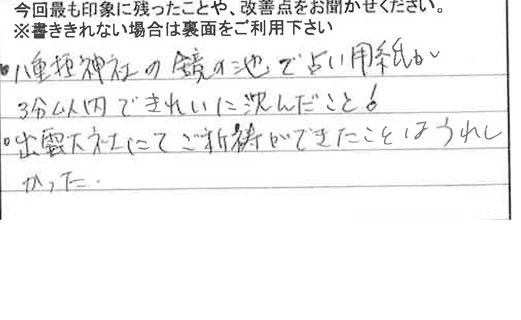 今回最も印象に残ったことや、改善点をお聞かせください。
※書ききれない場合は裏面をご利用下さい
•八重垣神社の鏡の池で占い用紙が
3分以内できれいに沈んだこと!
•出雲大社にてご祈祷ができたことはうれし
かった.